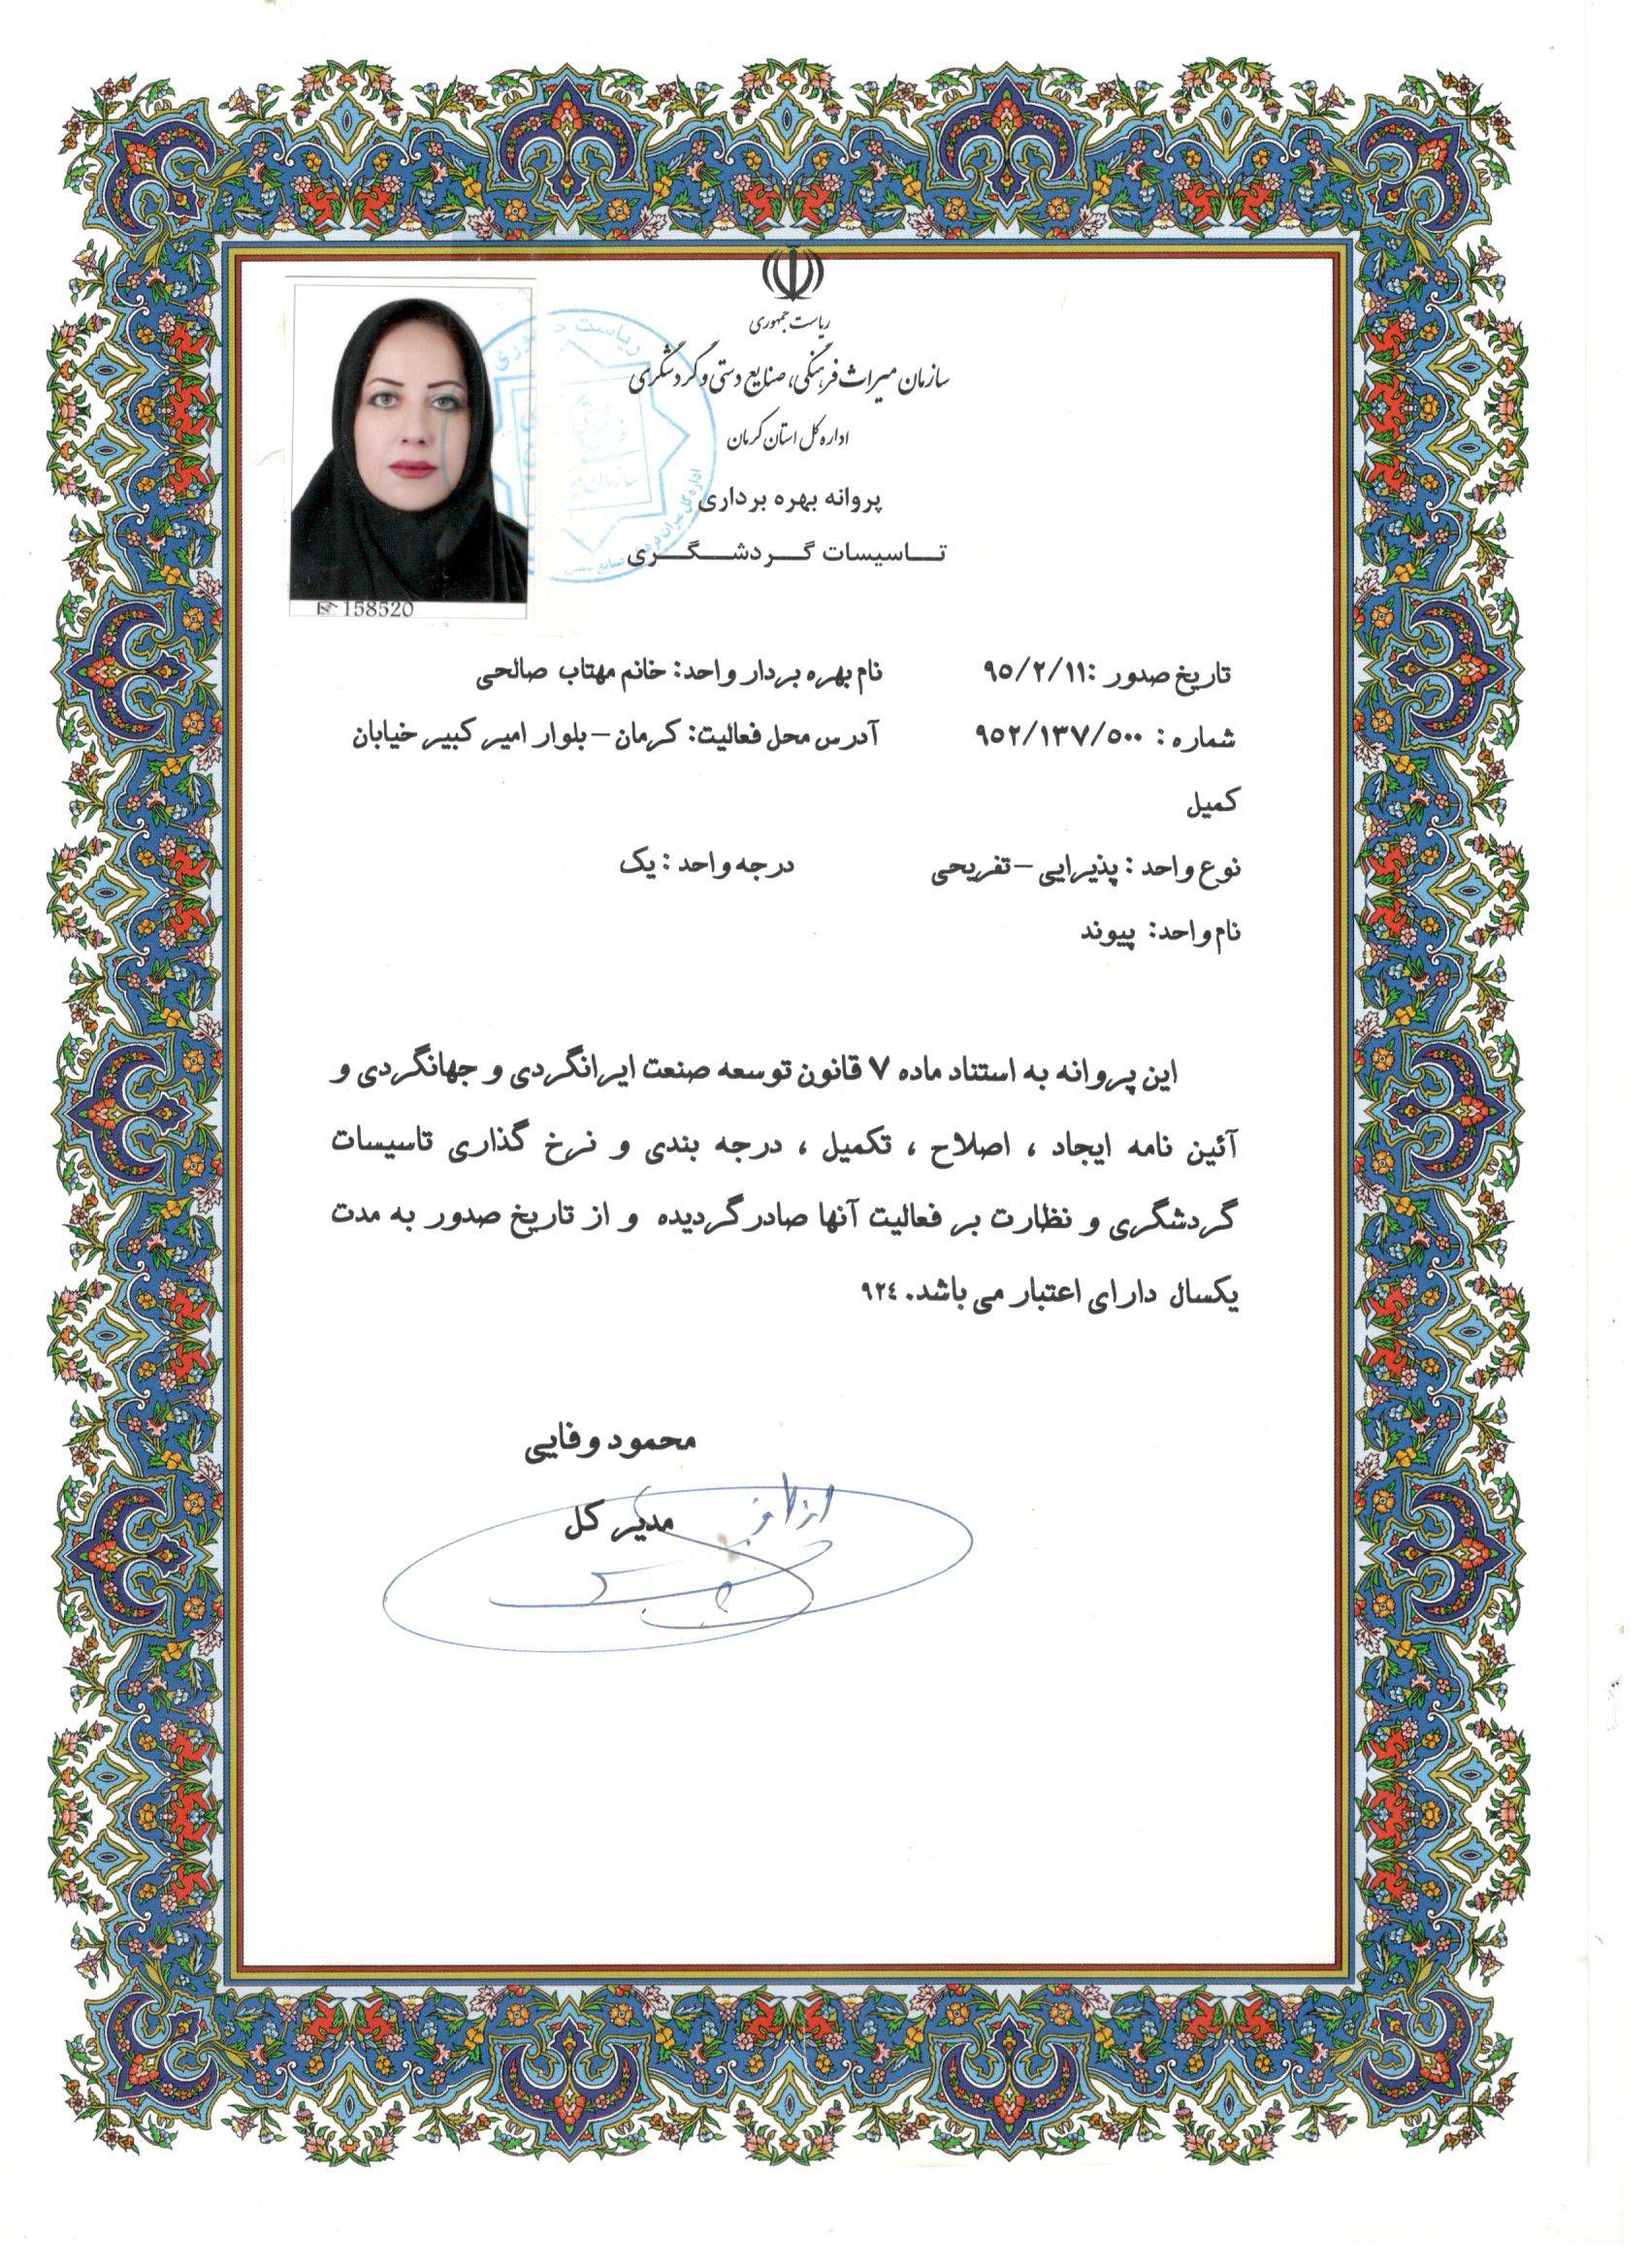 ریاست جمهوری
سازمان میراث فرهنگی، صنایع دستی و گردشگری
اداره کل استان کرمان
پروانه بهره برداری
تاسیسات گردشگری
158520
تاریخ صدور :۹۵/۲/۱۱ نام بهره بردار واحد: خانم مهتاب صالحی
شماره : ۹۵۲/۱۳۷/۵۰۰ آدرس محل فعالیت: کرمان – بلوار امیر کبیر خیابان
کمیل
نوع واحد : پذیرایی – تفریحی درجه واحد : یک
نام واحد: پیوند
این پروانه به استناد ماده ۷ قانون توسعه صنعت ایرانگردی و جهانگردی و
آئین نامه ایجاد ، اصلاح ، تکمیل ، درجه بندی و نرخ گذاری تاسیسات
گردشگری و نظارت بر فعالیت آنها صادر گردیده و از تاریخ صدور به مدت
یکسال دارای اعتبار می باشد. ۹۲٤
محمود وفایی
مدیر کل